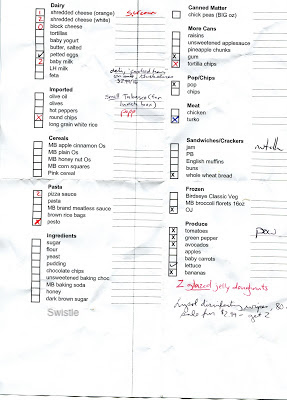 Dairy
shredded cheese (orange)
2 shredded cheese (white)
block cheese
tortillas
baby yogurt
butter, salted
petted eggs
2 baby milk
LH milk
feta
Imported
olive oil
olives
hot peppers
X round chips
long grain white rice
Cereals
MB apple cinnamon Os
MB plain Os
MB honey nut Os
MB corn squares
Pink cereal
Pasta
2 pizza sauce
pasta
MB brand meatless sauce
brown rice bags
X pesto
Ingredients
sugar
flour
yeast
pudding
chocolate chips
unsweetened baking choc
MB baking soda
honey
dark brown sugar
Swistle
small Tabasco (for
lunch box)
Canned Matter
chick peas (BIG oz)
More Cans
raisins
unsweetened applesauce
pineapple chunks
X gum
X tortilla chips
Pop/Chips
X pop
chips
Meat
X chicken
X turko
Sandwiches/Crackers
jam
PB
English muffins
buns
X whole wheat bread
nutella
Frozen
Birdseye Classic Veg
MB broccoli florets 16oz
X OJ
Produce
X tomatoes
X green pepper
X avocados
apples
baby carrots
lettuce
X bananas
2 glazed jelly doughnuts
Lysol disinfecting wipes, 80
sale for $2.99 - get 2